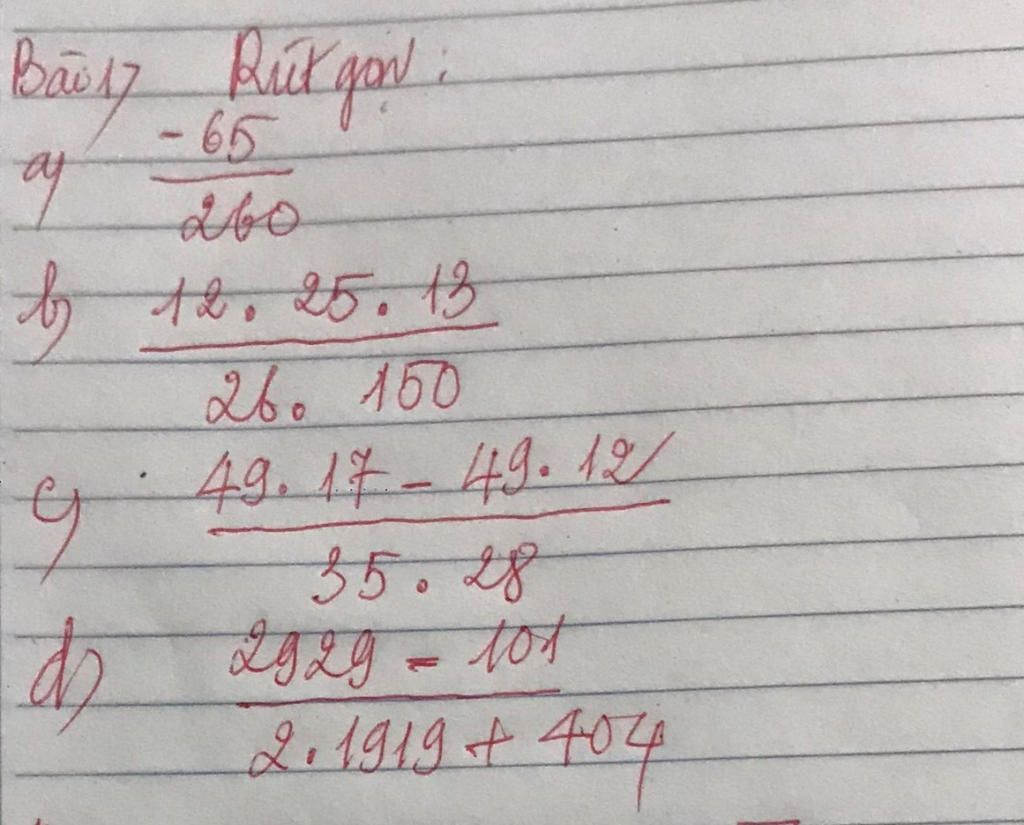 Bài 1) Rút gọn:
a) -65
260
b) 12. 25. 13
26. 150
c) 49. 17 - 49. 12
35. 28
d) 2929 - 101
2.1919 + 404